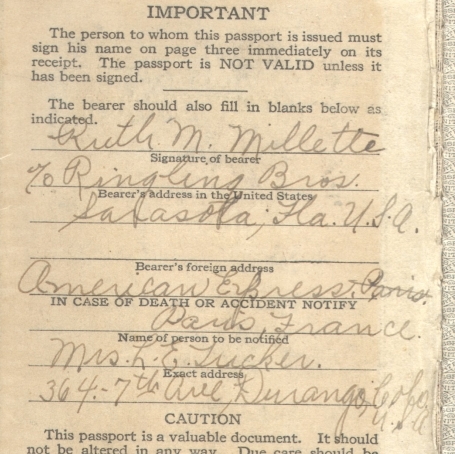 IMPORTANT
The person to whom this passport is issued must
sign his name on page three immediately on its
receipt. The passport is NOT VALID unless it
has been signed.
The bearer should also fill in blanks below as
indicated.
Ruth M. Millette
Signature of bearer
c/o Ringling Bros.
Bearer's address in the United States
Sarasota, Fla. U.S.A.
Bearer's foreign address
American Express, Paris
IN CASE OF DEATH OR ACCIDENT NOTIFY
Paris, France.
Name of person to be notified
Mrs. L. E. Tucker.
Exact address
364 - 7th Ave, Durango, Colo
U.S.A
CAUTION
This passport is a valuable document. It should
not be altered in any way. Due care should be